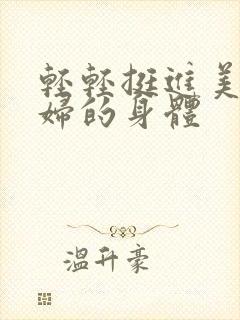 輕輕挺進美
婦的身體
溫升豪